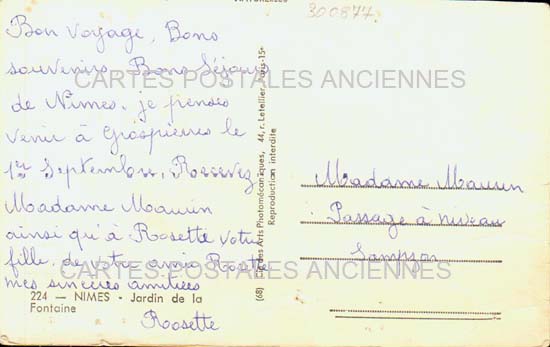 300877
Bon voyage, Bons
souvenirs. Bons Séjours
de Nîmes. je penses
venir à Grospierres le
1er Septembre, Recevez
Madame Mauvin
ainsi qu'à Rosette votre
fille, de votre amie Rosette
mes sincères amitiées
Rosette
224 — NIMES - Jardin de la
Fontaine
(68) Arts Photomécaniques, 44, r. Letellier, Paris-15e
Reproduction interdite
Madame Mauvin
Passage à niveau
Sampzon
CARTES POSTALES ANCIENNES
CARTES POSTALES ANCIENNES